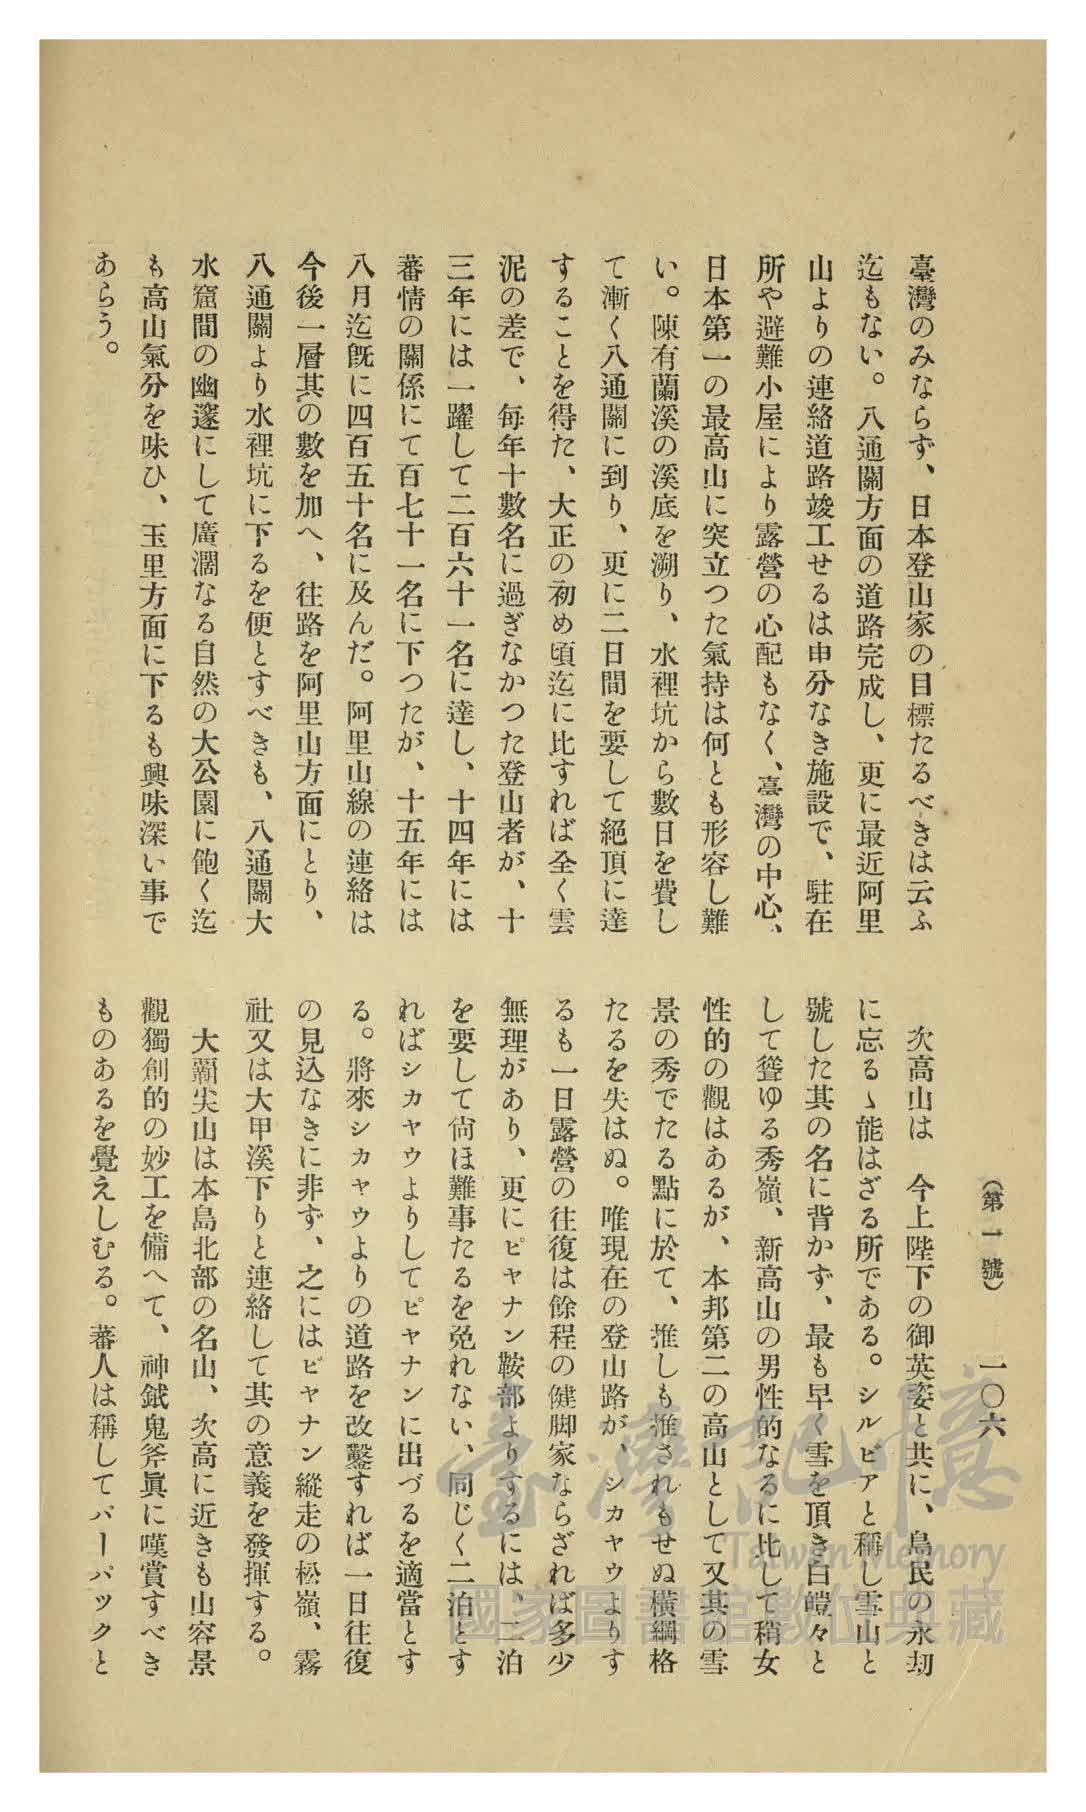 （第一號）　一〇六
臺灣のみならず、日本登山家の目標たるべきは云ふ
迄もない。八通關方面の道路完成し、更に最近阿里
山よりの連絡道路竣工せるは申分なき施設で、駐在
所や避難小屋により露營の心配もなく、臺灣の中心、
日本第一の最高山に突立つた氣持は何とも形容し難
い。陳有蘭溪の溪底を溯り、水裡坑から數日を費し
て漸く八通關に到り、更に二日間を要して絕頂に達
することを得た、大正の初め頃迄に比すれば全く雲
泥の差で、每年十數名に過ぎなかつた登山者が、十
三年には一躍して二百六十一名に達し、十四年には
蕃情の關係にて百七十一名に下つたが、十五年には
八月迄旣に四百五十名に及んだ。阿里山線の連絡は
今後一層其の數を加へ、往路を阿里山方面にとり、
八通關より水裡坑に下るを便とすべきも、八通關大
水窟間の幽邃にして廣濶なる自然の大公園に飽く迄
も高山氣分を味ひ、玉里方面に下るも興味深い事で
あらう。
次高山は　今上陛下の御英姿と共に、島民の永劫
に忘るゝ能はざる所である。シルビアと稱し雪山と
號した其の名に背かず、最も早く雪を頂き白皚々と
して聳ゆる秀嶺、新高山の男性的なるに比して稍女
性的の觀はあるが、本邦第二の高山として又其の雪
景の秀でたる點に於て、推しも推されもせぬ橫綱格
たるを失はぬ。唯現在の登山路が、シカヤウよりす
るも一日露營の往復は餘程の健脚家ならざれば多少
無理があり、更にピヤナン鞍部よりするには、二泊
を要して尙ほ難事たるを免れない、同じく二泊とす
ればシカヤウよりしてピヤナンに出づるを適當とす
る。將來シカヤウよりの道路を改鑿すれば一日往復
の見込なきに非ず、之にはピヤナン縱走の松嶺、霧
社又は大甲溪下りと連絡して其の意義を發揮する。
大霸尖山は本島北部の名山、次高に近きも山容景
觀獨創的の妙工を備へて、神鉞鬼斧眞に嘆賞すべき
ものあるを覺えしむる。蕃人は稱してパーパツクと
臺灣記憶
Taiwan Memory
國家圖書館數位典藏